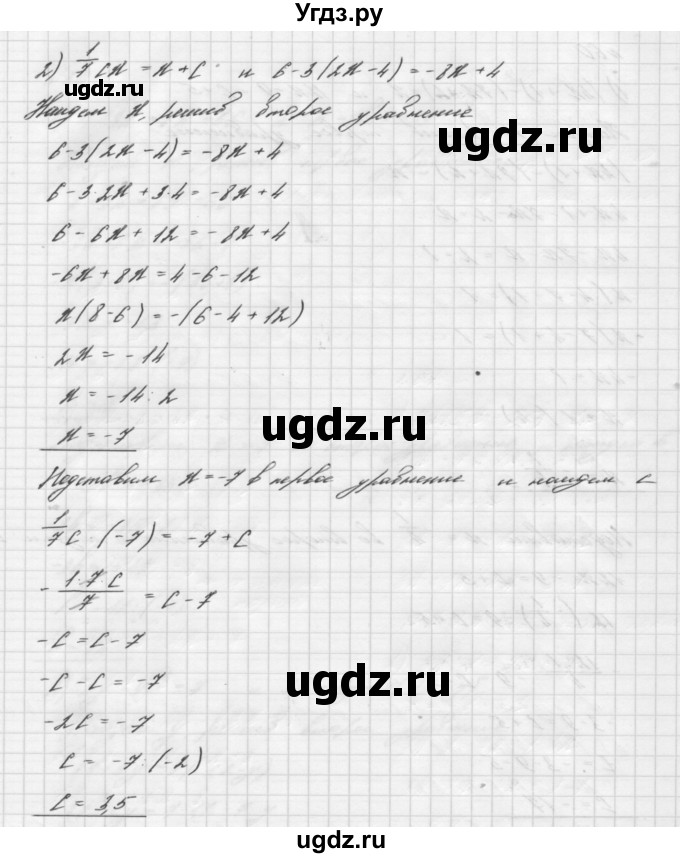 Угдз.ру
2) 1/7 cx = x + c и 6-3(2x-4)=-8x+4
Найдем x, решив второе уравнение
ugdz.ru
6-3(2x-4)=-8x+4
6-3·2x+3·4=-8x+4
6-6x+12=-8x+4
-6x+8x=4-6-12
x(8-6)=-(6-4+12)
2x=-14
x=-14:2
ugdz.ru
x=-7
Подставим x=-7 в первое уравнение и найдем c
1/7 c (-7) = -7+c
-1·7c/7 = c-7
-c=c-7
ugdz.ru
-c-c=-7
-2c=-7
c=-7:(-2)
c=3,5
ugdz.ru